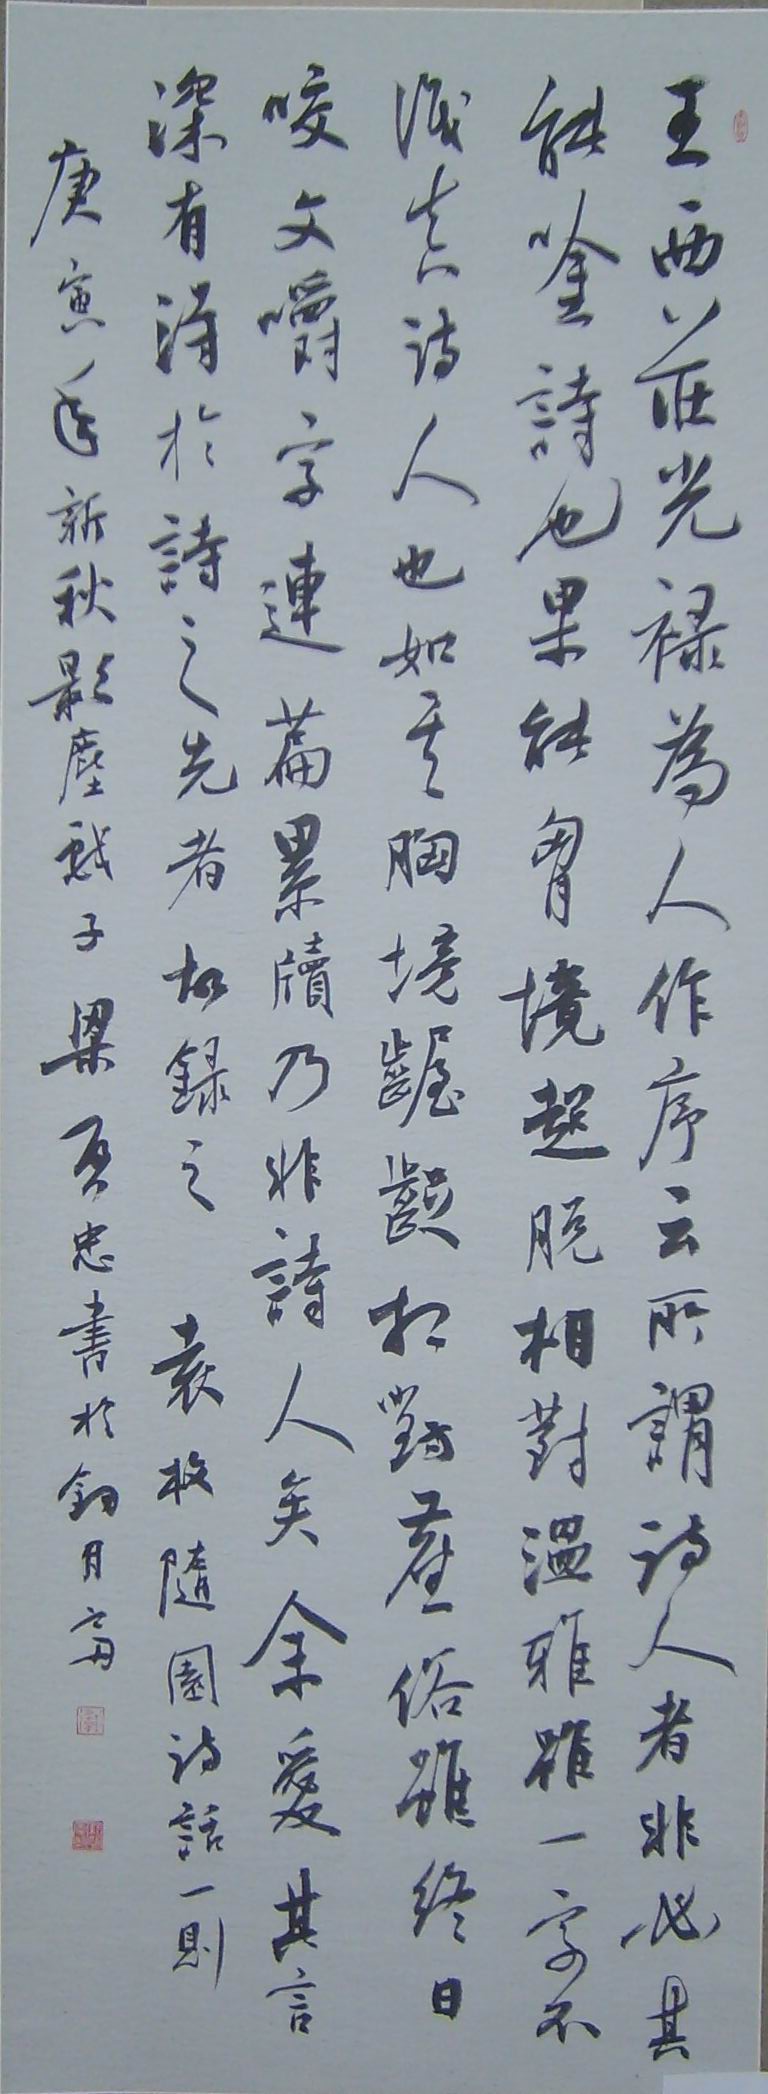 王西莊光禄為人作序云所謂诗人者非必其
能唫詩也果能胷境超脱相對温雅雖一字不
識真诗人也如其胸境齷齪相對塵俗雖終日
咬文嚼字連篇累牘乃非詩人矣余愛其言
深有得於詩之先者故録之 袁枚隨園诗話一則
庚寅年新秋影塵戲子梁 忠書於 月